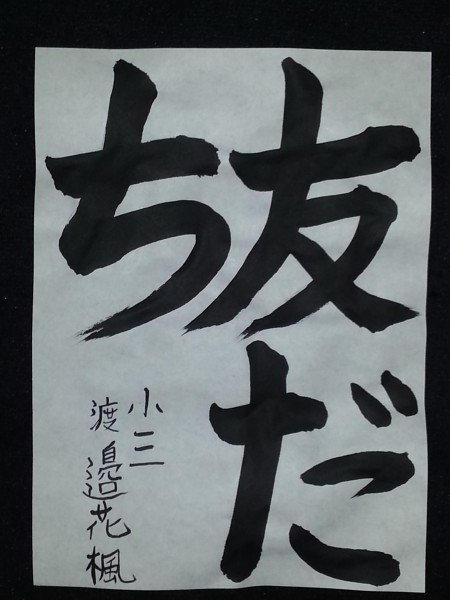 友だ
ち
小三
渡邉花楓